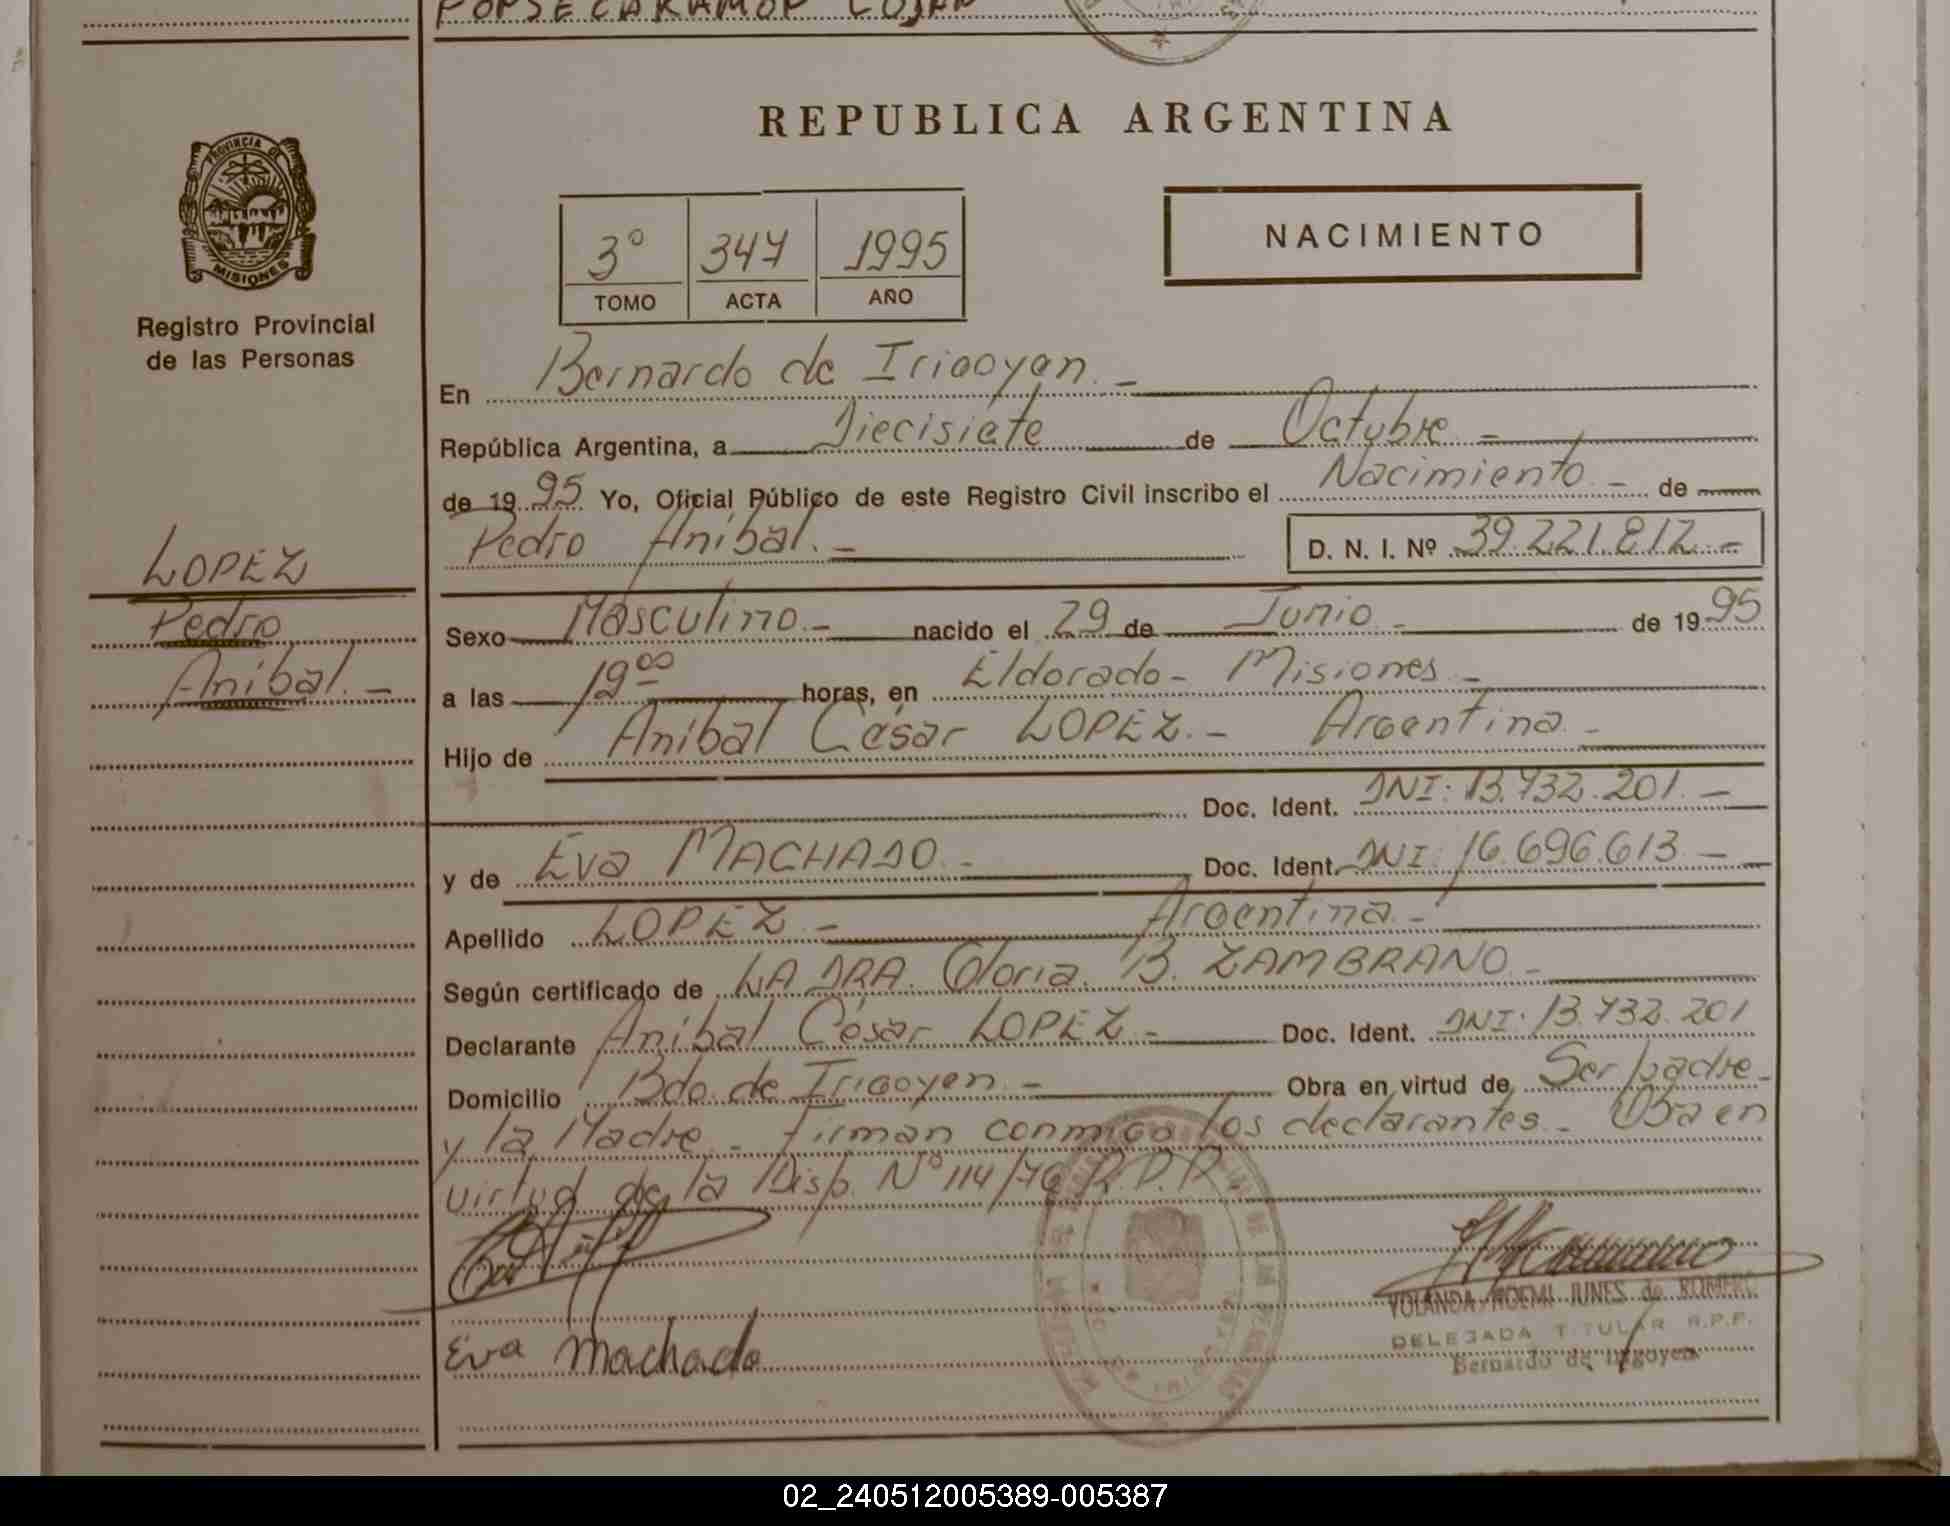 REPUBLICA ARGENTINA
PROVINCIA DE
MISIONES
Registro Provincial
de las Personas
3º 347 1995
TOMO ACTA AÑO
NACIMIENTO
En Bernardo de Irigoyen. -
República Argentina, a Diecisiete de Octubre -
de 19 95 Yo, Oficial Público de este Registro Civil inscribo el Nacimiento - de
Pedro Aníbal. - D. N. I. Nº 39.221.812 -
LOPEZ
Pedro
Aníbal. -
Sexo Masculino - nacido el 29 de Junio - de 19 95
a las 19⁰⁰ horas, en Eldorado - Misiones -
Hijo de Aníbal César LOPEZ. - Argentina -
Doc. Ident. DNI: 13.732.201. -
y de Eva MACHADO - Doc. Ident. DNI: 16.696.613 -
Apellido LOPEZ - Argentina -
Según certificado de LA DRA. Gloria. B. ZAMBRANO -
Declarante Aníbal César LOPEZ - Doc. Ident. DNI: 13.732.201
Domicilio Bdo. de Irigoyen - Obra en virtud de Ser padre -
y la Madre - firman conmigo los declarantes - Obra en
virtud de la Disp. Nº 114/76 R.P.P.
Eva Machado
YOLANDA NOEMI JUNES de ROMERO
DELEGADA TITULAR R.P.P.
Bernardo de Irigoyen
02_240512005389-005387